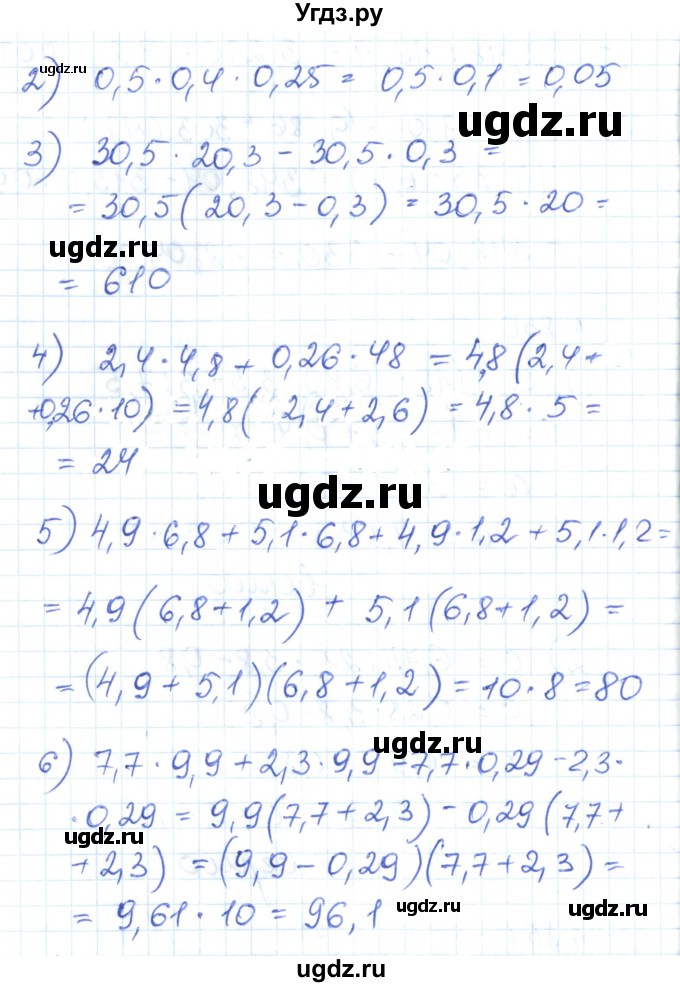 Угдз.ру
ugdz.ru
2) 0,5·0,4·0,25= 0,5·0,1=0,05
ugdz.ru
3) 30,5·20,3-30,5·0,3 =
=30,5(20,3-0,3)=30,5·20=
ugdz.ru
ugdz.ru
= 610
4) 2,4·4,8+0,26·48 =4,8(2,4+
+0,26·10) =4,8( 2,4+2,6)=4,8·5=
= 24
ugdz.ru
5) 4,9·6,8+5,1·6,8+4,9·1,2+5,1·1,2=
=4,9(6,8+1,2)+5,1(6,8+1,2)=
=(4,9+5,1)(6,8+1,2)=10·8=80
ugdz.ru
6) 7,7·9,9+2,3·9,9-7,7·0,29-2,3·
·0,29 = 9,9(7,7+2,3)-0,29(7,7+
ugdz.ru
+2,3) =(9,9-0,29)(7,7+2,3)=
= 9,61·10=96,1
ugdz.ru
ugdz.ru
ugdz.ru